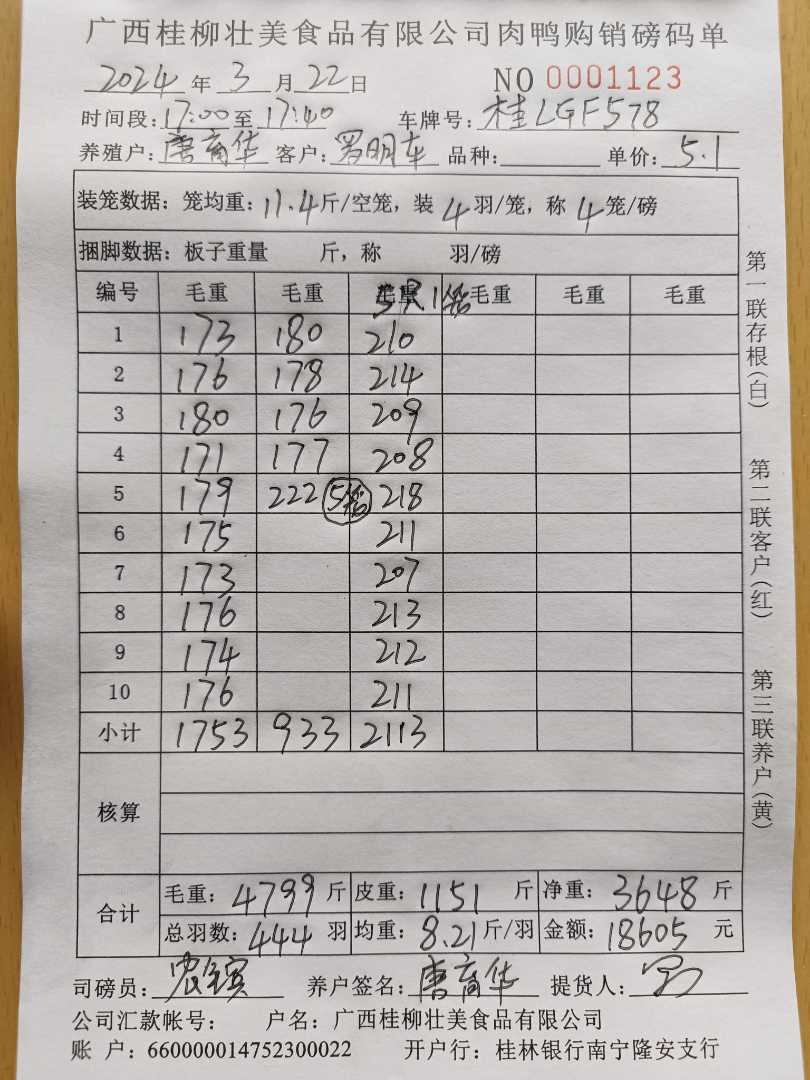 广西桂柳壮美食品有限公司肉鸭购销磅码单
2024 年 3 月 22 日 NO 0001123
时间段: 17:00 至 17:40 车牌号: 桂LGF578
养殖户: 唐育华 客户: 罗明车 品种: 单价: 5.1
装笼数据: 笼均重: 11.4 斤/空笼, 装 4 羽/笼, 称 4 笼/磅
捆脚数据: 板子重量 斤, 称 羽/磅
编号 毛重 毛重 毛重 5只1笼 毛重 毛重 毛重
1 173 180 210
2 176 178 214
3 180 176 209
4 171 177 208
5 179 222 5笼 218
6 175 211
7 173 207
8 176 213
9 174 212
10 176 211
小计 1753 933 2113
核算
合计 毛重: 4799 斤 皮重: 1151 斤 净重: 3648 斤
总羽数: 444 羽 均重: 8.21 斤/羽 金额: 18605 元
司磅员: 养户签名: 唐育华 提货人:
公司汇款帐号: 户名: 广西桂柳壮美食品有限公司
账 户: 660000014752300022 开户行: 桂林银行南宁隆安支行
第一联存根(白)
第二联客户(红)
第三联养户(黄)